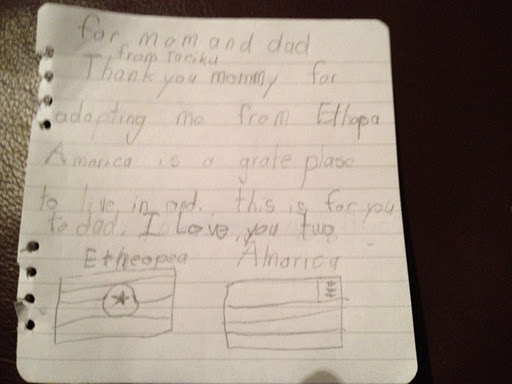 for mom and dad
from Tariku
Thank you mommy for
adopting me from Ethopa
Amarica is a grate plase
to live in and. this is for you
to dad. I Love you two
Etheopea Amarica